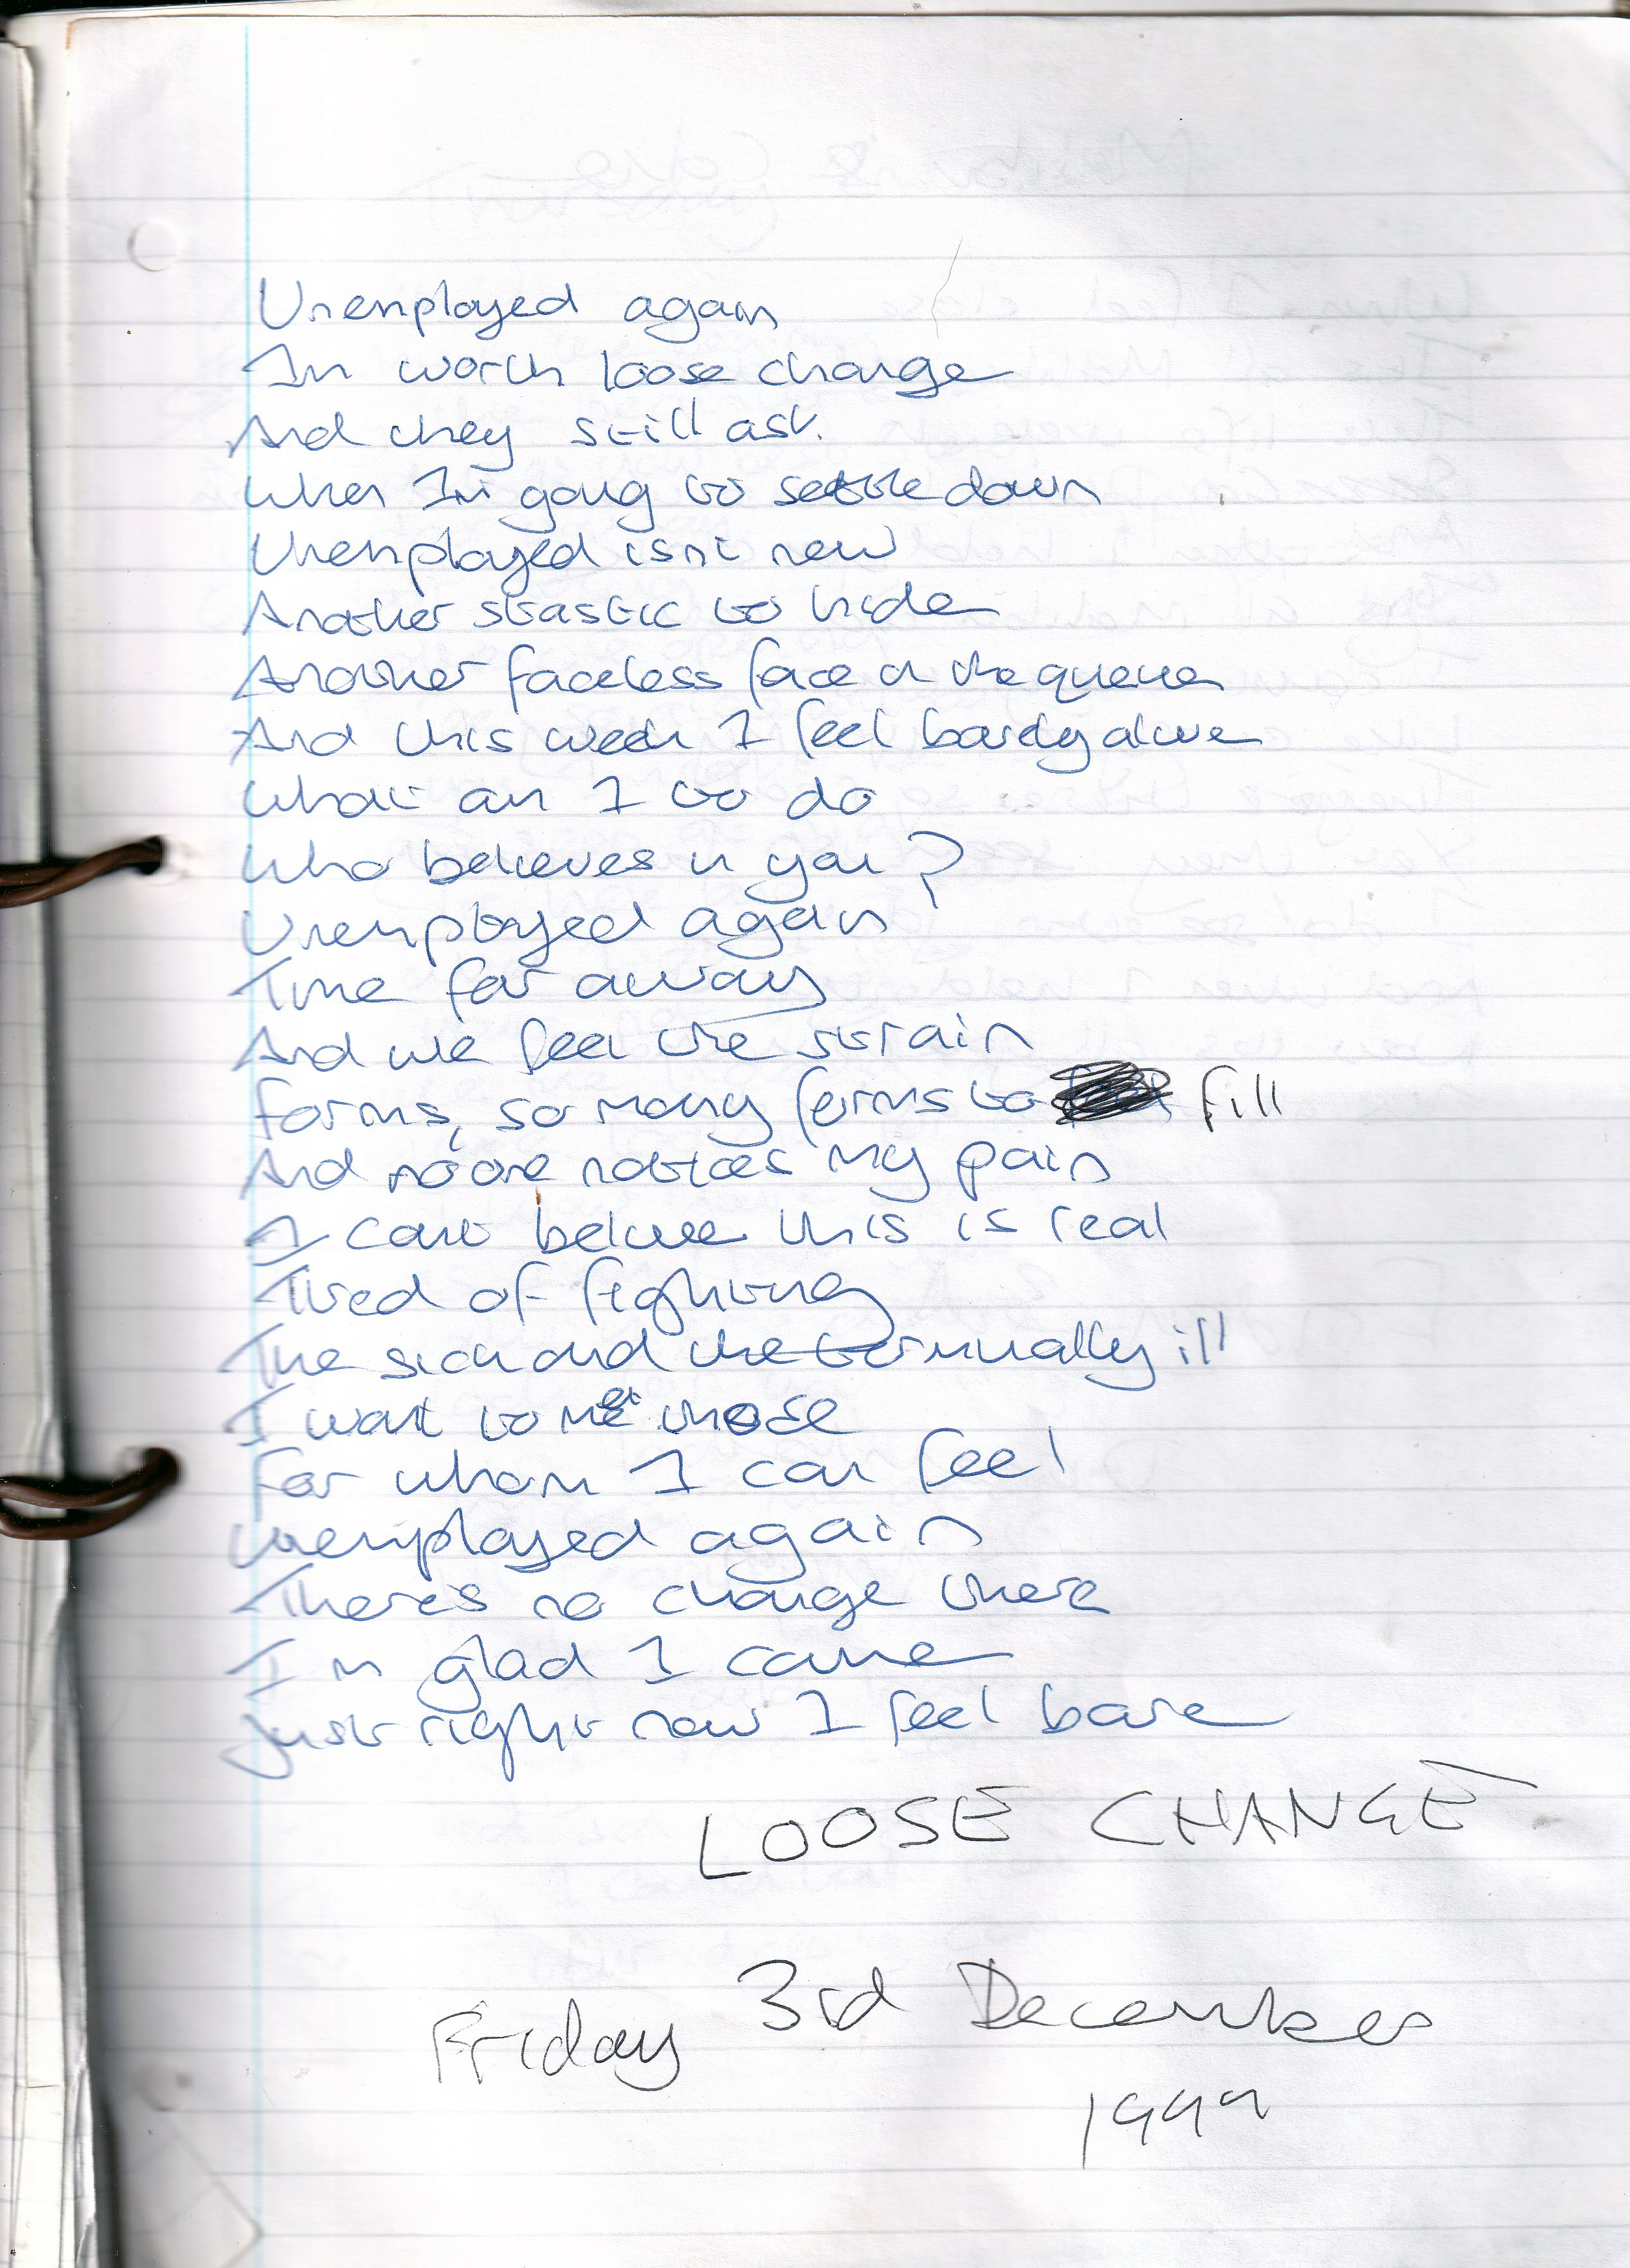 Unemployed again
Im worth loose change
And they still ask
When Im going to settle down
Unemployed isnt new
Another stastic to hide
Another faceless face in the queue
And this week I feel barely alive
What am I to do
Who believes in you?
Unemployed again
Time far away
And we feel the strain
Forms, so many forms to fill
And no one notices my pain
I cant believe this is real
Tired of fighting
The sick and the terminally ill
I want to meet those
For whom I can feel
Unemployed again
Theres no change there
Im glad I came
Just right now I feel bare
LOOSE CHANGE
Friday 3rd December
1999